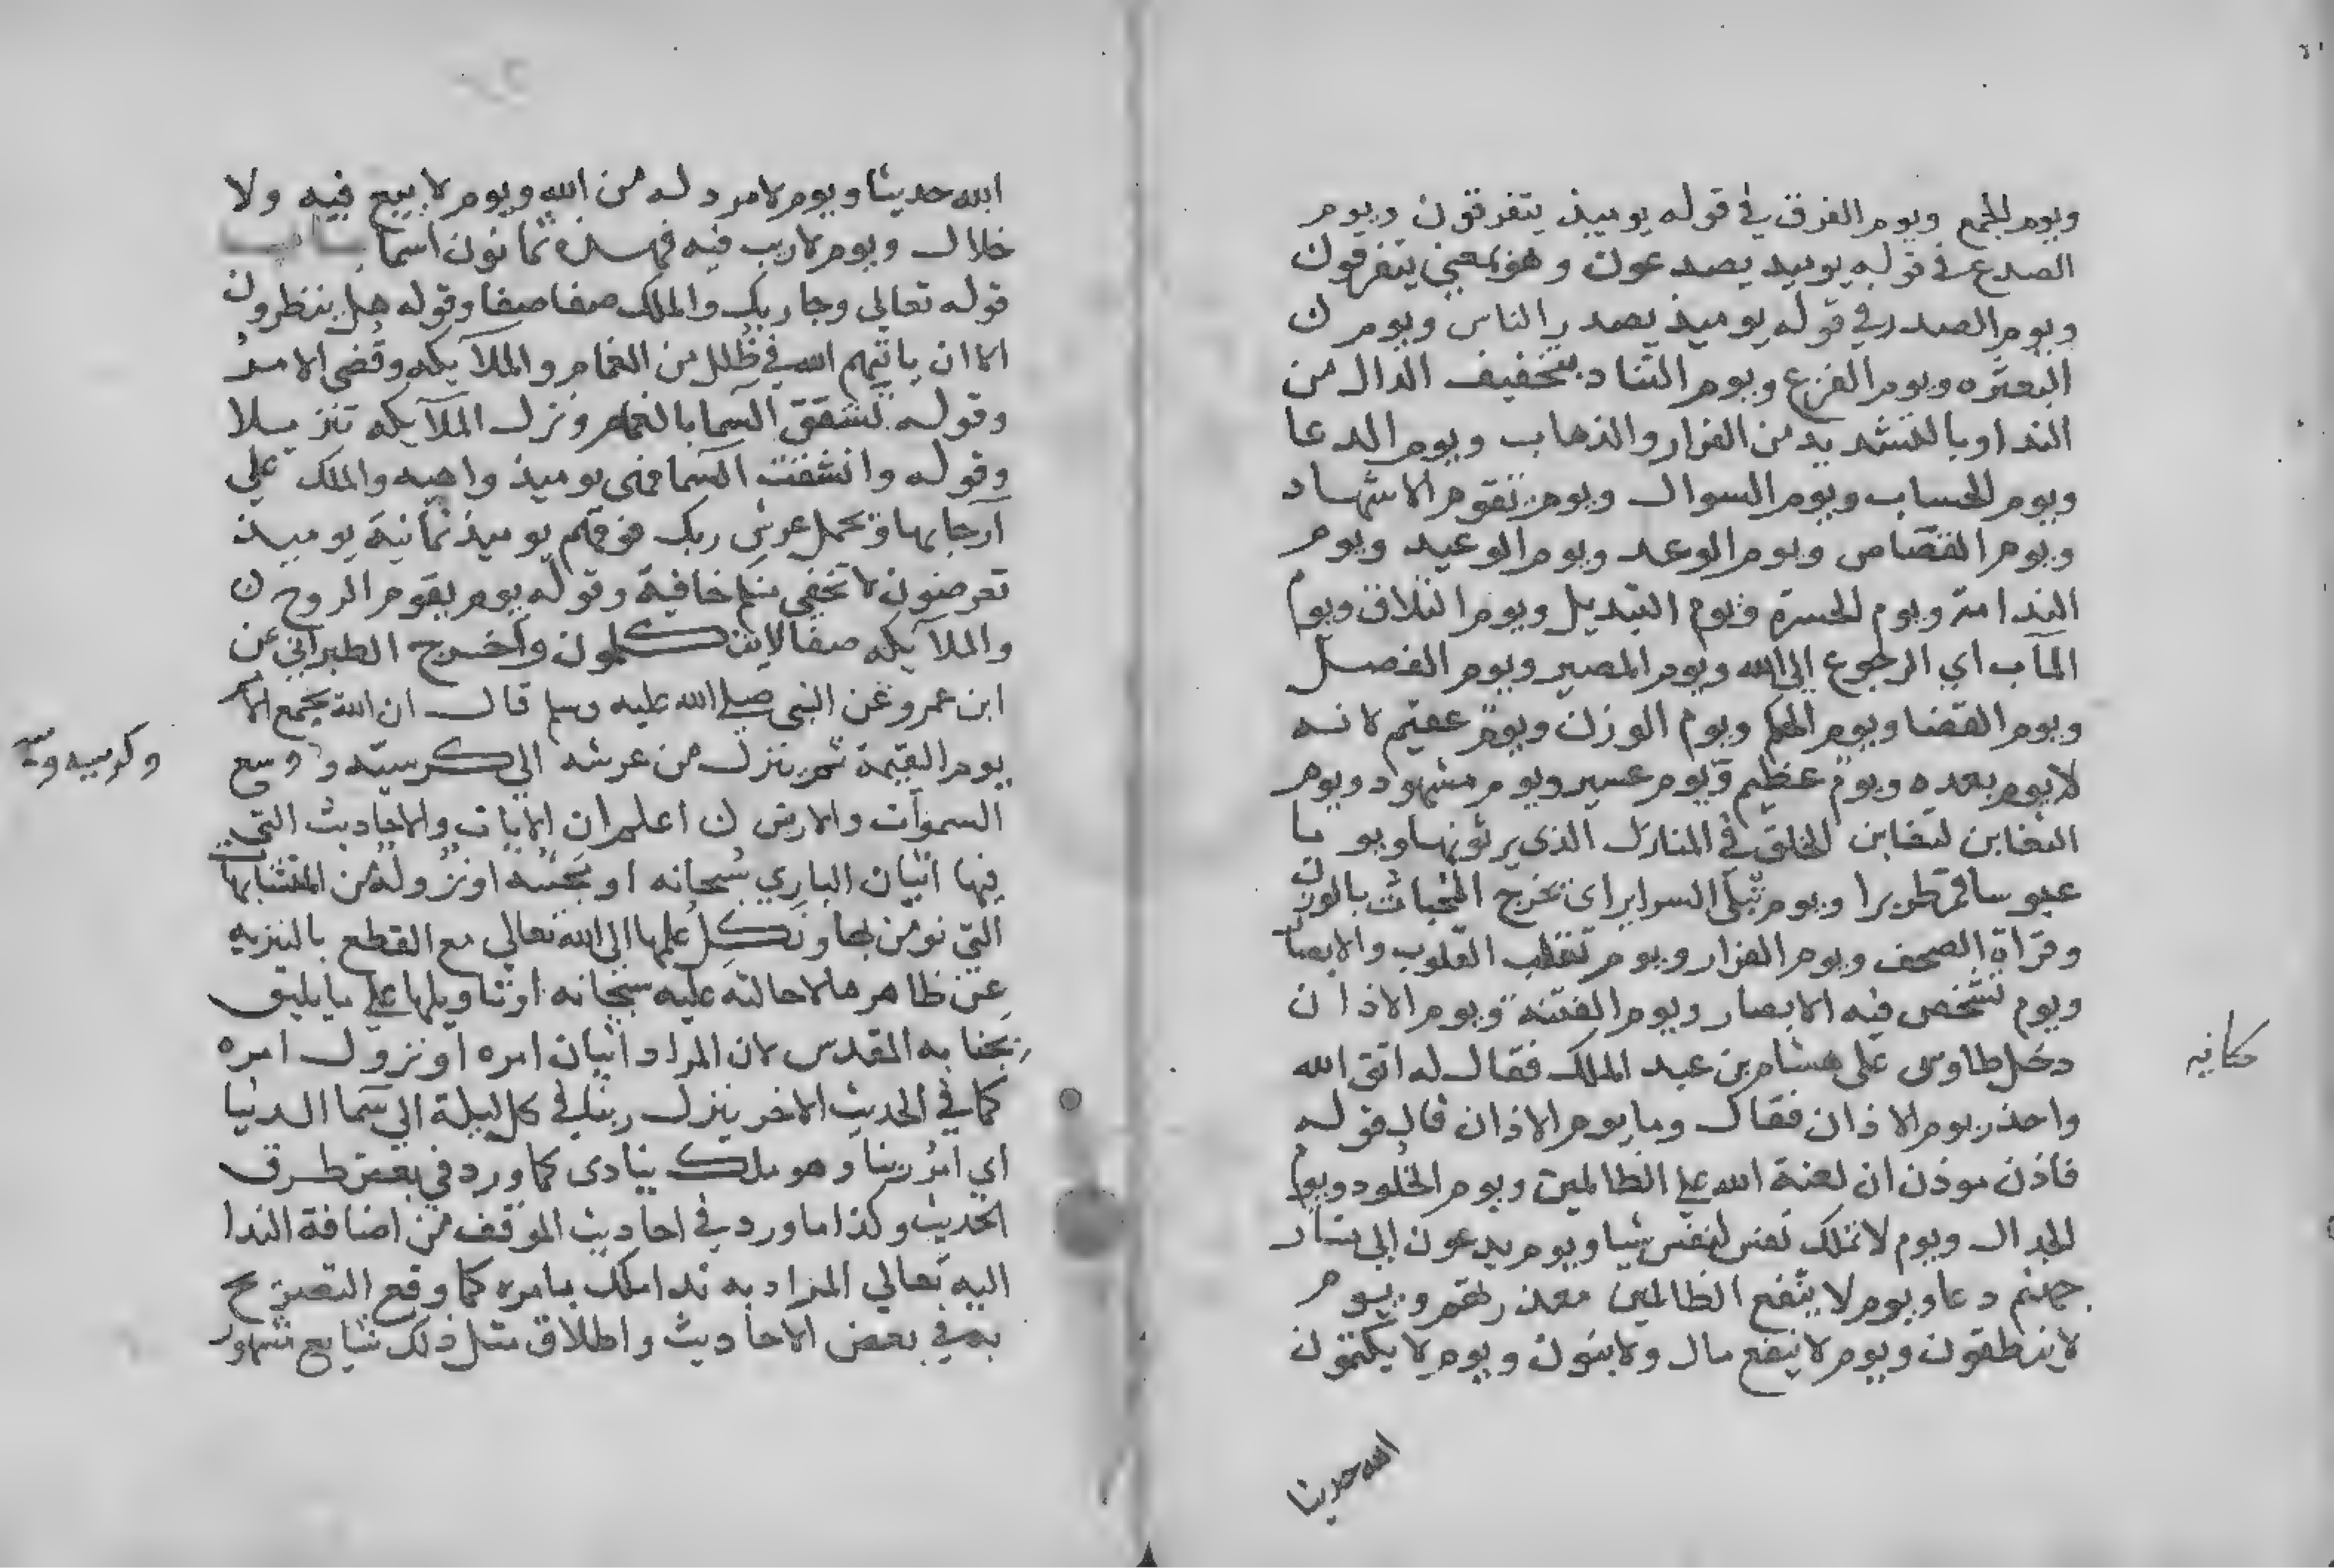 ويوم الجمع ويوم الفرق في قوله يوميذ يتفرقون ويوم
الصدع في قوله يوميذ يصدعون وهو بمعني يتفرقون
ويوم الصدر في قوله يوميذ يصدر الناس ويوم
البعثره ويوم الفزع ويوم التناد بتخفيف الدال من
الندا وبالتشديد من الفرار والذهاب ويوم الدعا
ويوم الحساب ويوم السوال ويوم تقوم الاشهاد
ويوم القصاص ويوم الوعد ويوم الوعيد ويوم
الندامة ويوم الحسرة ويوم التبديل ويوم التلاق ويوم
المآب اي الرجوع الي الله ويوم المصير ويوم الفصل
ويوم القضا ويوم الحكم ويوم الوزن ويوم عقيم لانه
لا يوم بعده ويوم عظيم ويوم عسير ويوم مشهود ويوم
التغابن لتغابن الخلق في المنازل الذي يرثونها ويوما
عبوسا قمطريرا ويوم تبلى السراير اي تخرج المخبات بالوزن
وقراة الصحف ويوم الفرار ويوم تقلب القلوب والابصار
ويوم تشخص فيه الابصار ويوم الفتنة ويوم الاذان
حكايه
دخل طاوس على هشام بن عبد الملك فقال له اتق الله
واحذر يوم الاذان فقال وما يوم الاذان قال قوله
فاذن موذن ان لعنة الله علي الظالمين ويوم الخلود ويوم
الجدال ويوم لا تملك نفس لنفس شيا ويوم يدعون الي نار
جهنم دعا ويوم لا ينفع الظالمين معذرتهم ويوم
لا ينطقون ويوم لا ينفع مال ولا بنون ويوم لا يكتمون
الله حديثا
الله حديثا ويوم لا مرد له من الله ويوم لا بيع فيه ولا
خلال ويوم لا ريب فيه فهذه ثمانون اسما باب
قوله تعالي وجا ربك والملك صفا صفا وقوله هل ينظرون
الا ان ياتيهم الله في ظلل من الغمام والملآيكه وقضي الامر
وقوله تشقق السما بالغمام ونزل الملآيكه تنزيلا
وقوله وانشقت السما فهي يوميذ واهيه والملك علي
آرجايها ويحمل عرش ربك فوقهم يوميذ ثمانية يوميذ
تعرضون لا تخفي منكم خافية وقوله يوم يقوم الروح
والملآيكه صفا لا يتكلمون وأخرج الطبراني عن
ابن عمرو عن النبي صلي الله عليه وسلم قال ان الله يجمع الامم
يوم القيمة ثم ينزل من عرشه الي كرسيه و وسع
وكرسيه
السموآت والارض اعلم ان الايات والاحاديث التي
فيها اتيان الباري سبحانه او مجيئه او نزوله من المتشابها
التي نومن بها ونكل علمها الي الله تعالي مع القطع بالتنزيه
عن ظاهرها لاحالته عليه سبحانه او تاويلها علي ما يليق
بجنابه المقدس لان المراد اتيان امره او نزول امره
كما في الحديث الاخر ينزل ربنا في كل ليلة الي سما الدنيا
اي امر ربنا وهو ملك ينادى كما ورد في بعض طرق
الحديث وكذا ما ورد في احاديث الموقف من اضافة الندا
اليه تعالي المراد به ندا ملك بامره كما وقع التصريح
به في بعض الاحاديث واطلاق مثل ذلك شايع مشهور